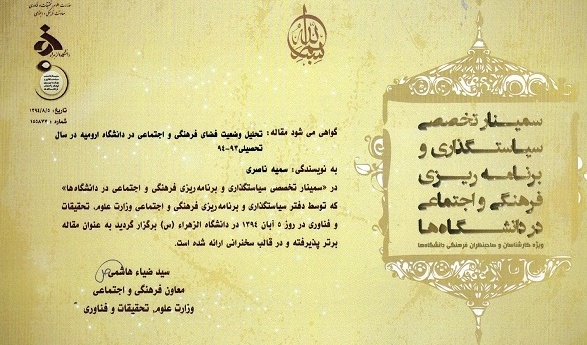 وزارت علوم، تحقیقات و فناوری
معاونت فرهنگی و اجتماعی
تاریخ: ۱۳۹۴/۸/۵
شماره: ۱۵۵۸۳۷
سمینار تخصصی
سیاستگذاری و
برنامه ریزی
فرهنگی و اجتماعی
در دانشگاه‌ها
ویژه کارشناسان و صاحبنظران فرهنگی دانشگاه‌ها
گواهی می شود مقاله: تحلیل وضعیت فضای فرهنگی و اجتماعی در دانشگاه ارومیه در سال
تحصیلی ۹۳-۹۴
به نویسندگی: سمیه ناصری
در «سمینار تخصصی سیاستگذاری و برنامه‌ریزی فرهنگی و اجتماعی در دانشگاه‌ها»
که توسط دفتر سیاستگذاری و برنامه‌ریزی فرهنگی و اجتماعی وزارت علوم، تحقیقات
و فناوری در روز ۵ آبان ۱۳۹۴ در دانشگاه الزهراء (س) برگزار گردید به عنوان مقاله
برتر پذیرفته و در قالب سخنرانی ارائه شده است.
سید ضیاء هاشمی
معاون فرهنگی و اجتماعی
وزارت علوم، تحقیقات و فناوری